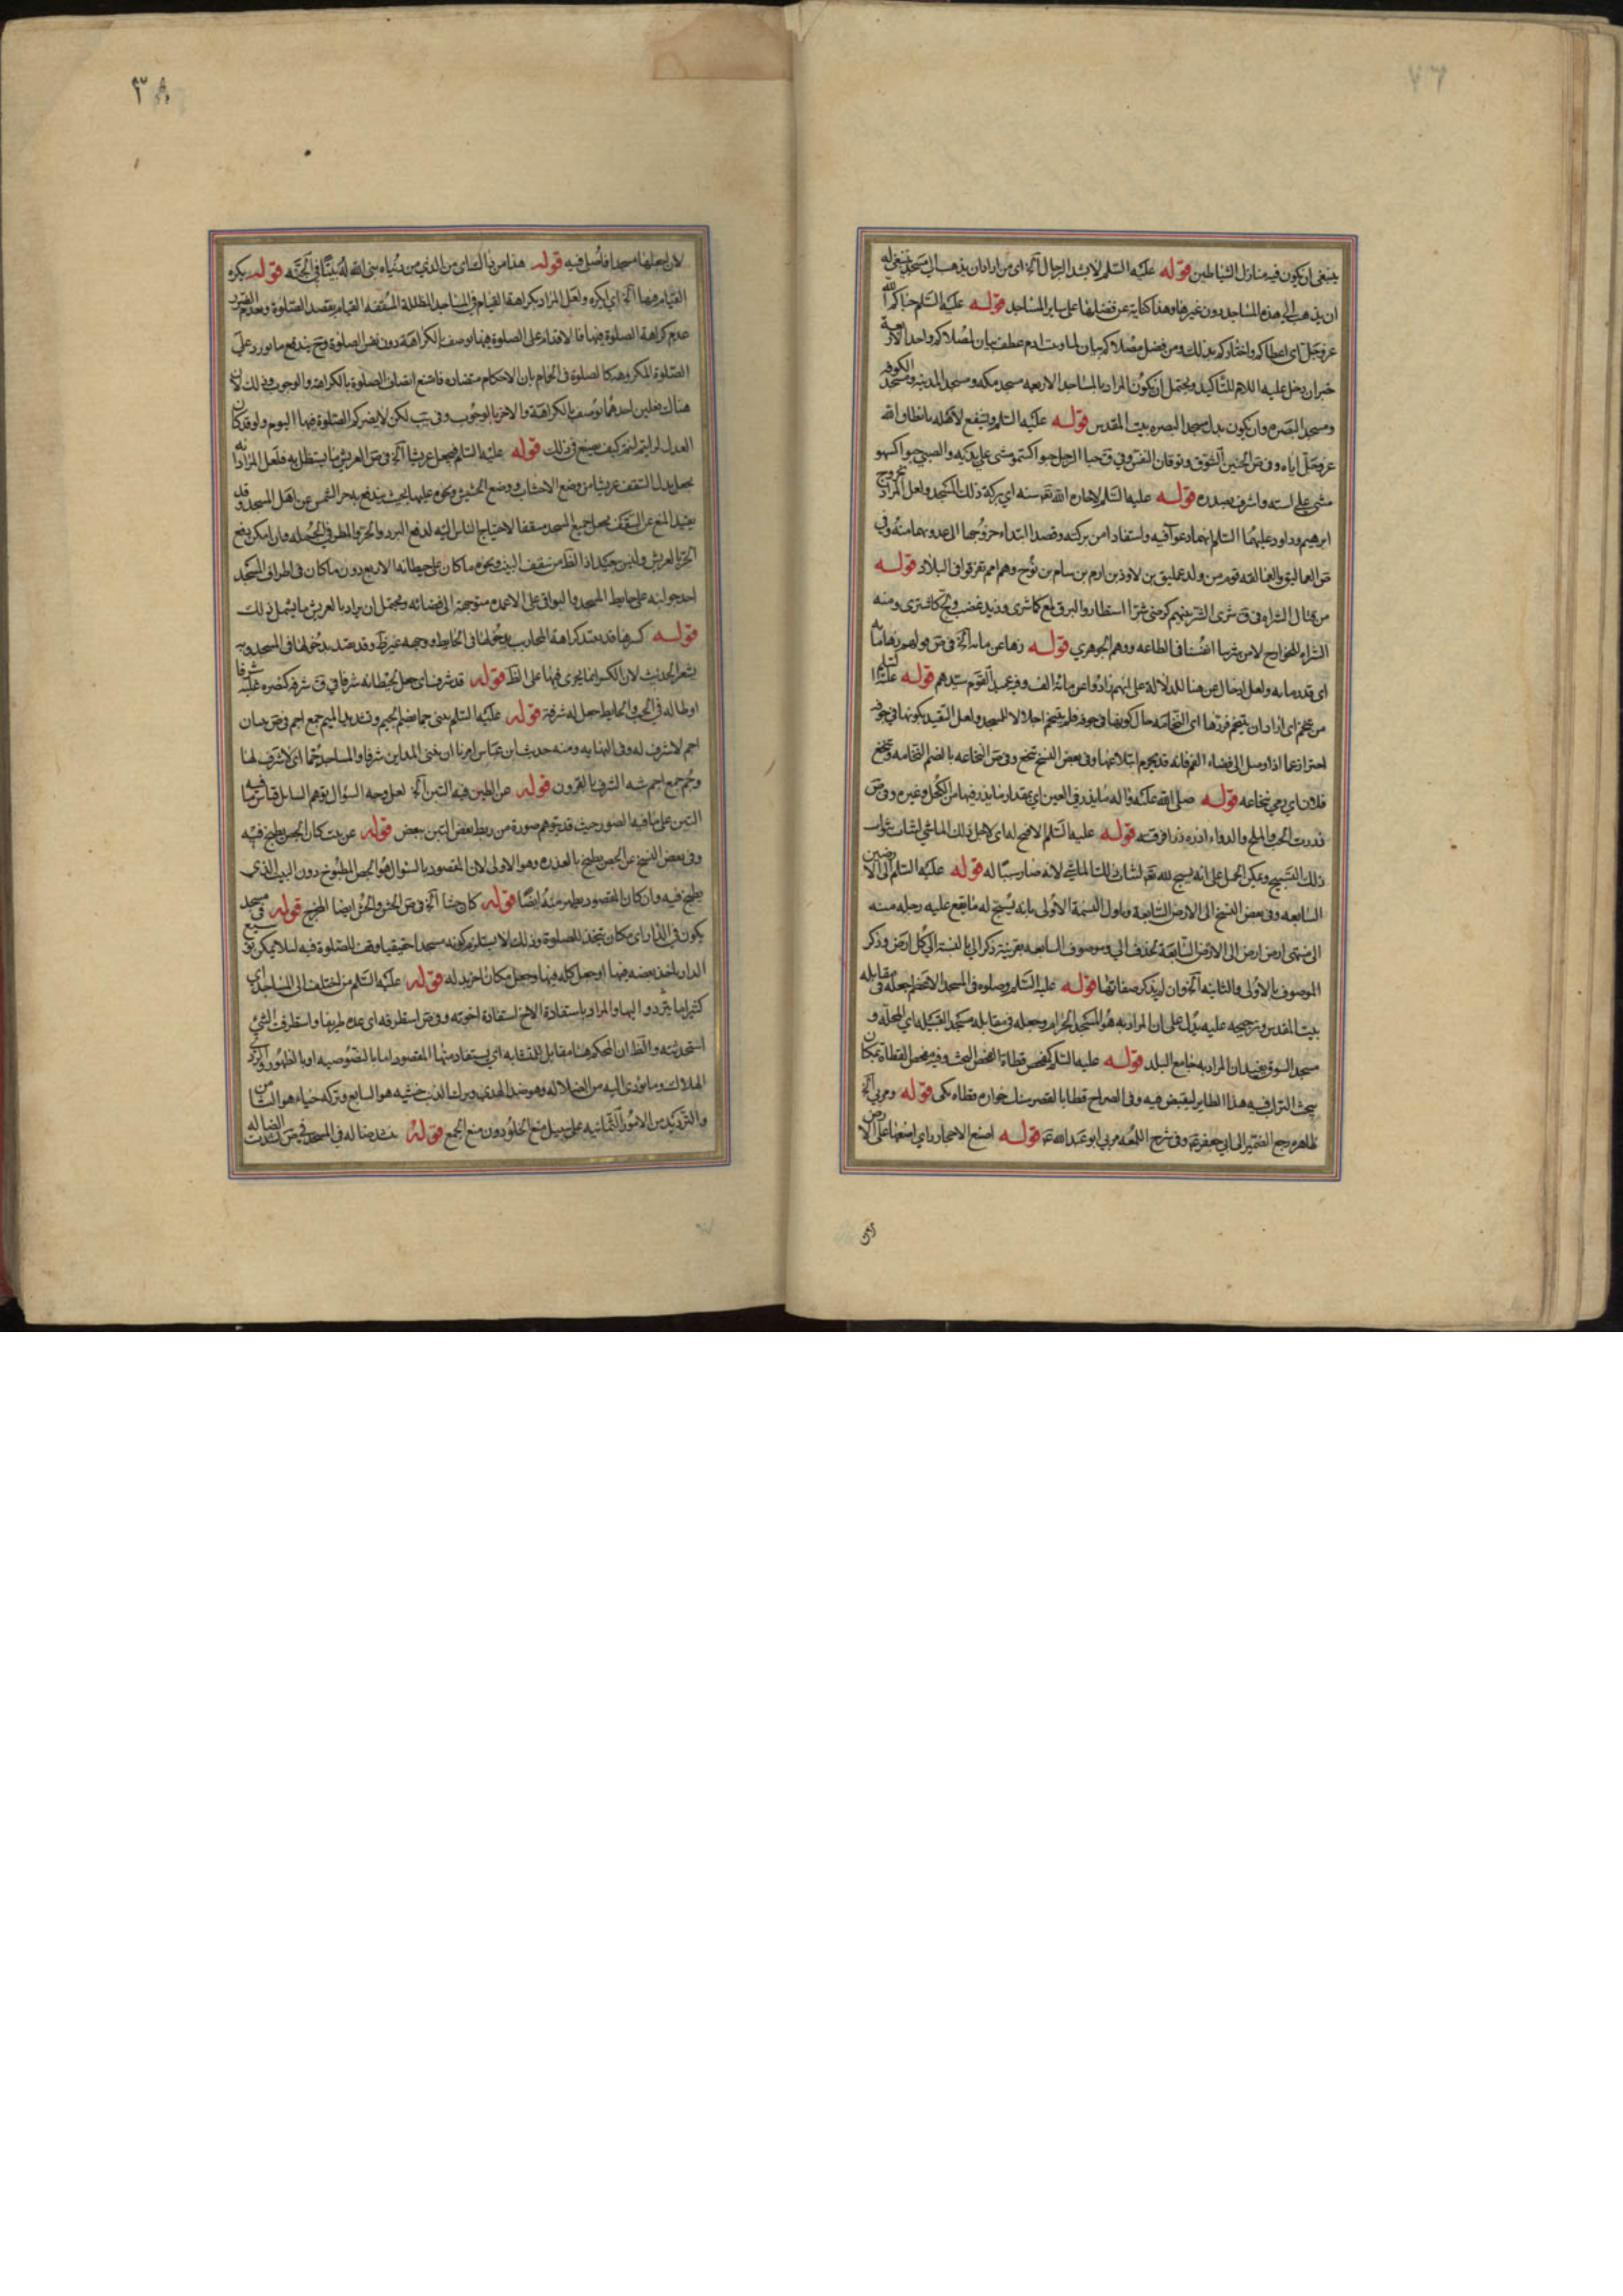 ٧٦
ينبغي ان يكون فيه منازل الشياطين قوله عليه السلم لا يشد الرحال آلخ اى من اراد ان يذهب الى مسجد ينبغي له
ان يذهب الى هذه المساجد دون غيرها وهذا كناية عن فضلها على ساير المساجد قوله عليه السلم حباكم الله
عز وجل اى اعطاكم واختاركم بذلك ومن فضل مصلاكم بيان لما وبيت ادم عطف بيان لمصلاكم واحد الاربعة
خبران دخل عليه اللام للتاكيد ويحتمل ان يكون المراد بالمساجد الاربعه مسجد مكه ومسجد المدينه ومسجد الكوفه
ومسجد البصره وان يكون بدل مسجد البصره بيت المقدس قوله عليه السلم وليشفع لاهله بانطاق الله
عز وجل اياه وفى ص الحنين الشوق وتوقان النفس وفي ق حبا الرجل حبوا كسمو مشى على يديه والصبي حبوا كسهو
مشى على استه واشرف بصدره قوله عليه السلم لاهان الله تع سنه اي بركة ذلك المسجد ولعل المراد بخروج
ابرهيم وداود عليهما السلم انهما دعوا فيه واستفادا من بركته وقصد ابتداء خروجهما الى عدوهما منه وفي
ص العماليق والعمالقه قوم من ولد عمليق بن لاوذ بن ارم بن سام بن نوح وهم امم تفرقوا فى البلاد قوله
من مثال الشراه فى ق شرى الشر بينهم كرضى شرا استطار والبرق لمع كاشرى وزيد غضب ولج كاستشرى ومنه
الشراه للخوارج لا من شرينا انفسنا فى الطاعه ووهم الجوهري قوله زهاء عن مائه آلخ فى ص قولهم زهاء مائه
اى قدر مايه ولعل ادخال عن هنا للدلالة على انهم زادوا عن مائه الف وفيه عميد القوم سيدهم قوله عليه السلم
من تنخم اى اراد ان يتنخم فردها اى النخامه حال كونها فى جوفه فلم يتنخم اجلالا للمسجد ولعل التقييد بكونها فى جوفه
احتراز عما اذا وصل الى فضاء الفم فانه قد يحرم ابتلاعها وفى بعض النسخ تنخع وفى ص النخاعه بالضم النخامه وتنخع
فلان اي رمي نخاعه قوله صلى الله عليه واله ما يذر فى العين اي بمقدار ما يذر فيها من الكحل وغيره وفى ص
ذررت الحب والملح والدواء اذره ذرا فرقته قوله عليه السلم الا فتح له اى لاجل ذلك الماشي ليثاب ثواب
ذلك التسبيح ويمكن الحمل على انه يسبح لله تع لشان ذلك الماشي لانه صار سببا له قوله عليه السلم الى الارضين
السابعه وفى بعض النسخ الى الارض السابعة وياول النسخة الاولى بانه يسبح له ما يقع عليه رجله منه
الى منتهى ارض ارض الى الارض السابعة بحذف الى وموصوف السابعه بقرينة ذكر الى بالنسبة الى كل ارض وذكر
الموصوف بالاولى والثانيه آلخ وان لم يذكر صفاتها قوله عليه السلم وصلوه فى المسجد الاعظم جعله فى مقابله
بيت المقدس وترجيحه عليه يدل على ان المراد به هو المسجد الحرام وجعله فى مقابله مسجد القبيله اي المحلة و
مسجد السوق يفيد ان المراد به جامع البلد قوله عليه السلم كمفحص قطاة الفحص البحث وفيه مفحص القطاة بمكان
يبحث التراب فيه هذا الطاير ليقبض فيه وفى الصراح قطا بالقصر سنك خواره قطاه يكى قوله ومر بي آلخ
ظاهره رجع الضمير الى ابي جعفر ع وفى شرح اللمعه مر بي ابو عبد الله ع قوله اصنع الاحجار اي اضعها على الارض
لان
٣٨
لان اجعلها مسجدا فاصلى فيه قوله هذا من ذاك اى من الذي من دنياه بنى الله له بيتا فى الجنه قوله يكره
القيام فيها آلخ اي اكره ولعل المراد بكراهة القيام فى المساجد المظللة المسقفه القيام بقصد الصلوة وبعدم الضرر
عدم كراهة الصلوة فيها فالاقدام على الصلوة فيها يوصف بالكراهة دون نفس الصلوة وح يندفع ما يورد على
الصلوة المكروهه كالصلوة فى الحمام بان الاحكام متضاده فامتنع اتصاف الصلوة بالكراهة والوجوب وذلك لان
هناك فعلين احدهما يوصف بالكراهة والاخر بالوجوب وفى يب لكن لا يضركم الصلوة فيها اليوم ولو قد كان
العدل لرايتم كيف يصنع فى ذلك قوله عليه السلم فيجعل عريشا آلخ فى ص العريش ما يستظل به فلعل المراد انه
يجعل بدل السقف عريشا من وضع الاخشاب ووضع الحشيش ونحوه عليها بحيث يندفع به حر الشمس عن اهل المسجد وقد
يفيد المنع عن السقف بجعل جميع المسجد مسقفا لاحتياج الناس اليه لدفع البرد والحر والمطر فى الجمله وان امكن دفع
الحر بالعريش وليس ببعيد اذ الظ من سقف البيت ونحوه ما كان على حيطانه الاربع دون ما كان فى اطراف المسجد
احد جوانبه على حايط المسجد والبواقى على الاعمده متوجهة الى فضائه ويحتمل ان يراد بالعريش ما يشمل ذلك
قوله كسرها قد يعتد كراهة المحاريب بدخولها فى الحايط ووجهه غير ظ وقد يقيد بدخولها فى المسجد وبه
يشعر الحديث لان الكسر انما يجرى فيها على الظ قوله قد شرف اى جعل لحيطانه شرفا فى ق شرفه كنصره غلبه شرفا
او طاله فى الحسب والحايط جعل له شرفة قوله عليه السلم يبنى جما بضم الجيم وتشديد الميم جمع اجم فى ص بنيان
اجم لا شرف له وفى النهايه ومنه حديث ابن عباس امرنا ان نبنى المداين شرفا والمساجد جما اى لا شرف لها
وجم جمع اجم شبه الشرف بالقرون قوله عن الطين فيه التبن آلخ لعل وجه السؤال توهم السايل قياس ما فيه
التبن على ما فيه الصور حيث قد يتوهم صورة من ربط بعض التبن ببعض قوله عن بيت كان الجص يطبخ فيه
وفى بعض النسخ عن الجص يطبخ بالعذره وهو الاولى لان المقصود بالسؤال هو الجص المطبوخ دون البيت الذي
يطبخ فيه وان كان المقصود يظهر منه ايضا قوله كان حشا آلخ فى ص الحش والحش ايضا المخرج قوله فى مسجد
يكون فى الدار اى مكان يتخذ للصلوة وذلك لا يستلزم كونه مسجدا حقيقيا وقف للصلوة فيه لئلا يمكن توسيع
الدار باخذ بعضه فيها او جعل كله فيها وجعل مكان اخر بدله قوله عليه السلم من اختلف الى المساجد اي
كثيرا ما يتردد اليها والمراد باستفادة الاخ استفادة اخوته وفى ص استطرفه اى عده طريفا واستطرفت الشئ
استحدثته والظ ان المحكم هنا مقابل للمتشابه اي يستفاد منها المقصود اما بالنصوصيه او بالظهور والردى
الهلاك وما يؤدى اليه من الضلاله وهو ضد الهدى وترك الذنب خشيه هو السابع وتركه حياء هو الثامن
والترديد بين الامور الثمانيه على سبيل منع الخلو دون منع الجمع قوله ينشد ضالة فى المسجد فى ص نشدت الضاله